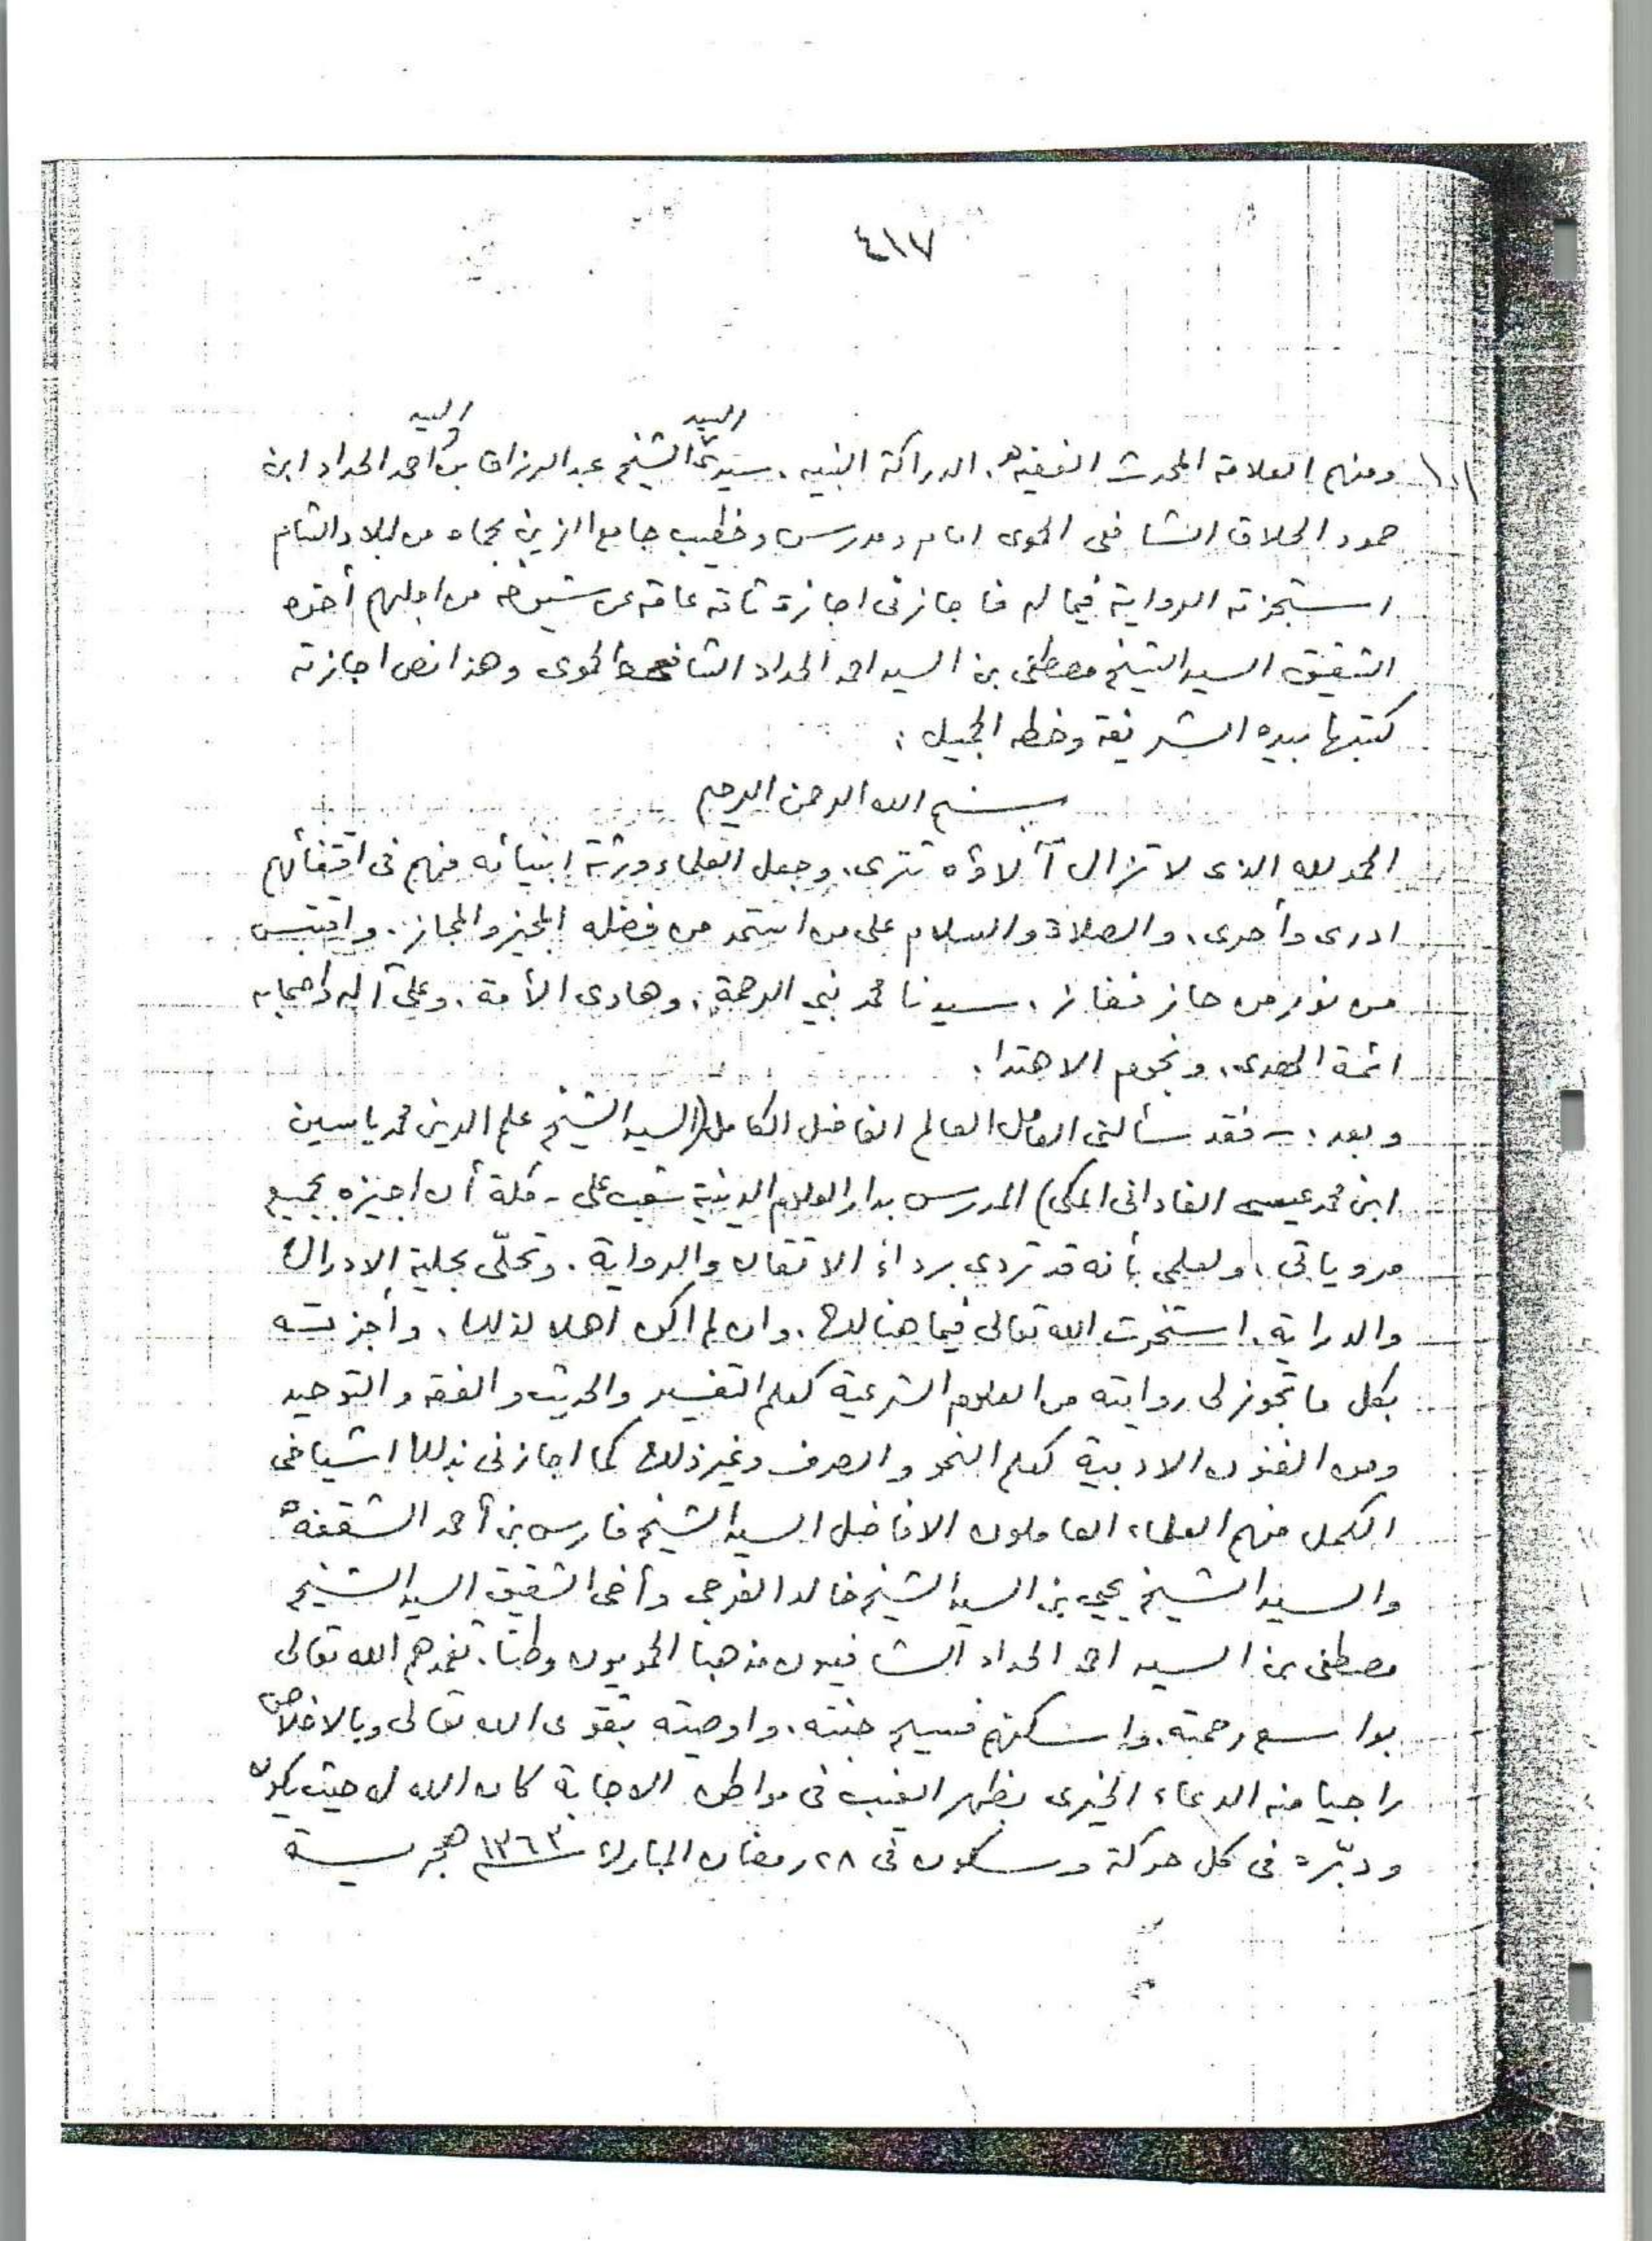 ٤١٧
السيد السيد
١٠١ ومنهم العلامة المحدث الفقيه، الدراكة النبيه، سيدى الشيخ عبد الرزاق بن احمد الحداد ابن
حمود الحلاق الشافعى الحموى امام ومدرس وخطيب جامع الزين بحماه من بلاد الشام
استجزته الرواية فيما له فأجازنى اجازة تامة عامة عن شيوخه من اجلهم أخوه
الشقيق السيد الشيخ مصطفى بن السيد احمد الحداد الشافعى الحموى وهذا نص اجازته
كتبها بيده الشريفة وخطه الجميل :
بسم الله الرحمن الرحيم
الحمد لله الذى لا تزال آلاؤه تترى، وجعل العلماء ورثة انبيائه فهم فى اقتفائهم
ادرى وأحرى، والصلاة والسلام على من استمد من فضله المجيز والمجاز. واقتبس
من نوره من حاز ففاز، سيدنا محمد نبي الرحمة، وهادى الأمة، وعلى آله وأصحابه
ائمة الهدى، ونجوم الاهتدا.
وبعد :- فقد سألنى العامل العالم الفاضل الكامل (السيد الشيخ علم الدين محمد ياسين
ابن محمد عيسى الفادانى المكى) المدرس بدار العلوم الدينية شعب على - مكة أن اجيزه بجميع
مروياتى، ولعلمى بأنه قد تردى برداء الاتقان والرواية. وتحلّى بحلية الادراك
والدراية، استخرت الله تعالى فيما هنالك، وان لم اكن اهلا لذلك، وأجزته
بكل ما تجوز لى روايته من العلوم الشرعية كعلم التفسير والحديث والفقه والتوحيد
ومن الفنون الادبية كعلم النحو والصرف وغير ذلك كما اجازنى بذلك اشياخى
الكمل منهم العلماء العاملون الافاضل السيد الشيخ فارس بن أحمد الشقفة
والسيد الشيخ يحيى بن السيد الشيخ خالد الفرجى وأخى الشقيق السيد الشيخ
مصطفى بن السيد احمد الحداد الشافعيون مذهبا الحمويون وطنا، تغمدهم الله تعالى
بواسع رحمته، واسكنهم فسيح جنته، واوصيته بتقوى الله تعالى وبالاخلاص
راجيا منه الدعاء الخيرى بظهر الغيب فى مواطن الاجابة كان الله له حيث يكون
ودبّره فى كل حركة وسكون فى ٢٨ رمضان المبارك سنة ١٣٦٣ هجرية